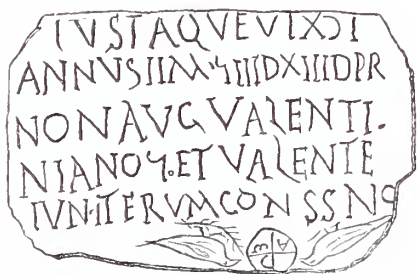 IVSTAQVEVIXƆI
ANNVSIIM꞉ҶIIIIDXIIIIDPR
NONAVGVALENTI.
NIANOҶ.ETVALENTE
IVN·ITERVMCONSSNC